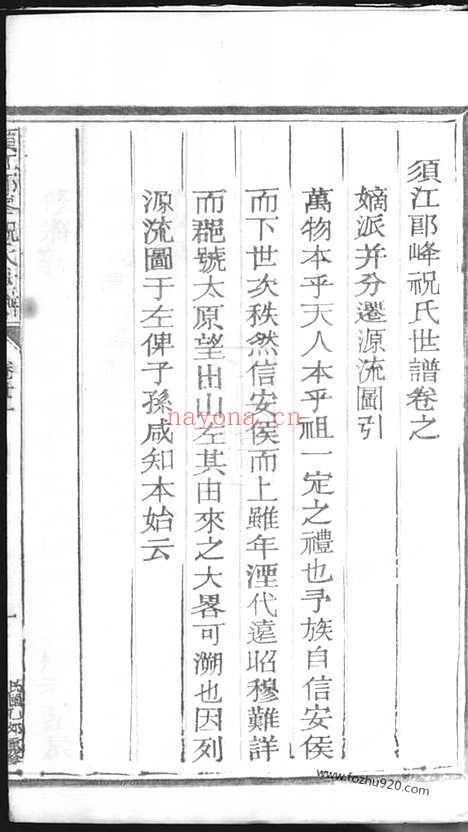 須江郎峰祝氏世譜卷之
嫡派并分遷源流圖引
萬物本乎天人本乎祖一定之禮也予族自信安侯
而下世次秩然信安侯而上雖年湮代遠昭穆難詳
而郡號太原望出山左其由來之大畧可溯也因列
源流圖于左俾子孫咸知本始云
nayona.cn
www.fozhu920.com